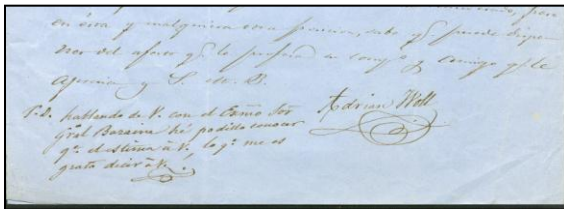 en esta y cualquiera otra provincia, sabe qe. puede dispo-
ner del afecto qe. le profesa su compo. y amigo qe. le
aprecia y S. M. B.
Adrian Woll
P.D. hablando de V. con el Exmo Sor
Gral Bazaine hé podido conocer
qe. el estima à V. lo qe. me es
grato decir à V.